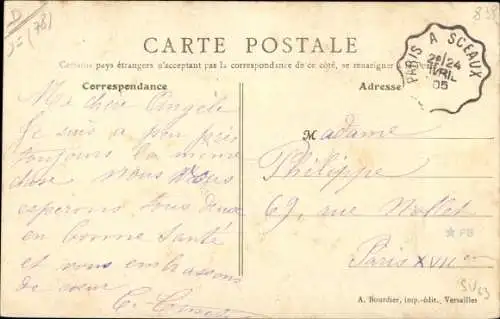 D
(78)
838
CARTE POSTALE
Certains pays étrangers n'acceptant pas la correspondance de ce côté, se renseigner
PARIS A SCEAUX
24
AVRIL
05
Correspondance
Adresse
Ma chère Angèle
Je suis a peu près
toujours la même
chose nous vous
espérons tous deux
en bonne santé
et vous embrassons
de coeur
Madame
Philippe
69, rue Nollet
Paris XVII em
★ PB
A. Bourdier, imp.-édit., Versailles